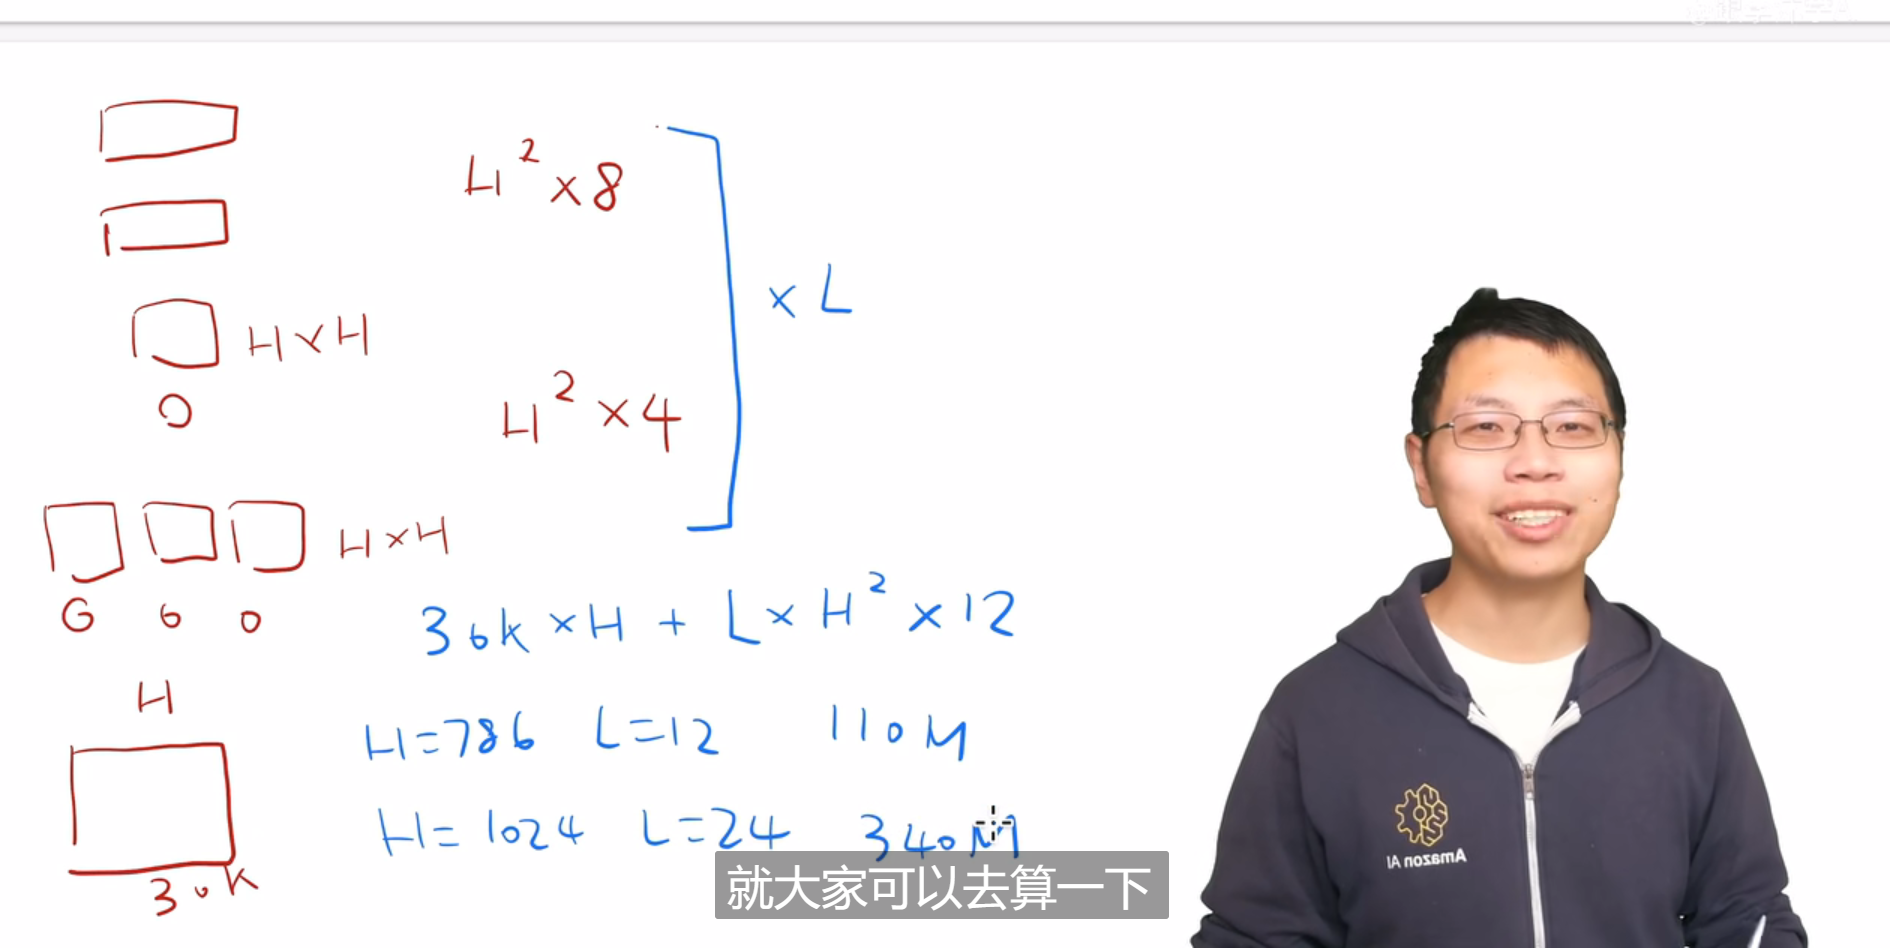 H² × 8
× L
H × H
O
H² × 4
H × H
G 6 O
30k × H + L × H² × 12
H
H=786 L=12 110M
H=1024 L=24 340M
30K
就大家可以去算一下
Amazon AI